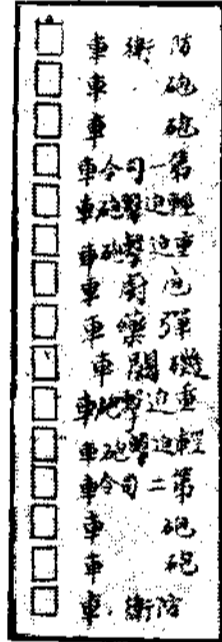 防衛車
砲車
砲車
第一司令車
輕迫擊砲車
重迫擊砲車
庖廚車
彈藥車
機關車
重迫擊砲車
輕迫擊砲車
第二司令車
砲車
砲車
防衛車